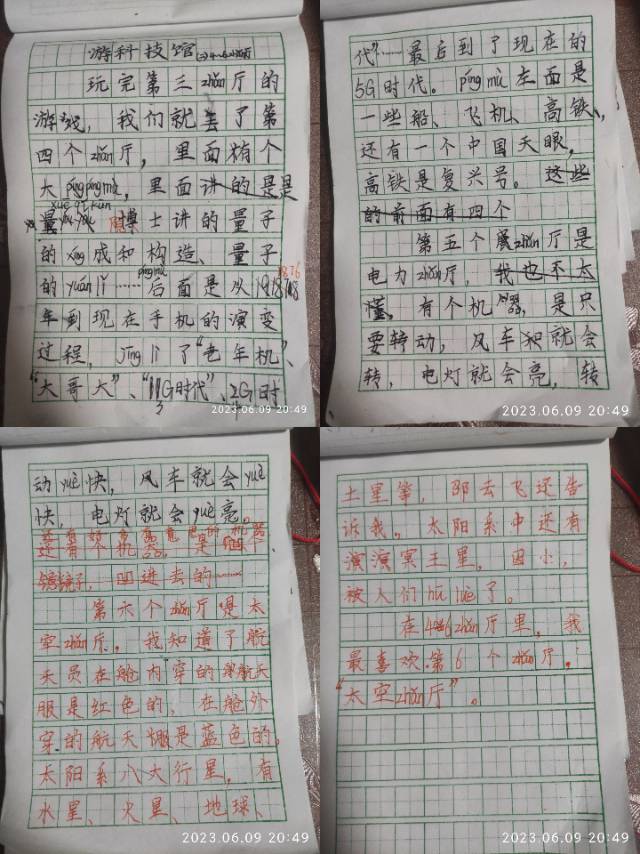 游科技馆
玩完第三zhǎn厅的
游戏，我们就去了第
四个zhǎn厅，里面有个
大píng mù，里面讲的是
博士讲的量子
的xíng成和构造、量子
的yuán lǐ……后面是从
年到现在手机的演变
过程，jīng lì了“老年机”、
“大哥大”、“1G时代”、2G时
2023.06.09 20:49
代”……最后到了现在的
5G时代。píng mù左面是
一些船、飞机、高铁，
还有一个中国天眼，
高铁是复兴号。这些
的前面有四个
第五个zhǎn厅是
电力zhǎn厅，我也不太
懂，有个机器，是只
要转动，风车就会
转，电灯就会亮，转
2023.06.09 20:49
动yuè快，风车就会yuè
快，电灯就会yuè亮。
还有个机器，是
镜子，凹进去的……
第六个zhǎn厅是太
空zhǎn厅，我知道了航
天员在舱内穿的航天
服是红色的，在舱外
穿的航天服是蓝色的。
太阳系八大行星，有
水星、火星、地球、
2023.06.09 20:49
土星等，邵云飞还告
诉我。太阳系中还有
冥王星，因小，
被人们hū lüè了。
在6zhǎn厅里，我
最喜欢第6个zhǎn厅，
“太空zhǎn厅”。
2023.06.09 20:49